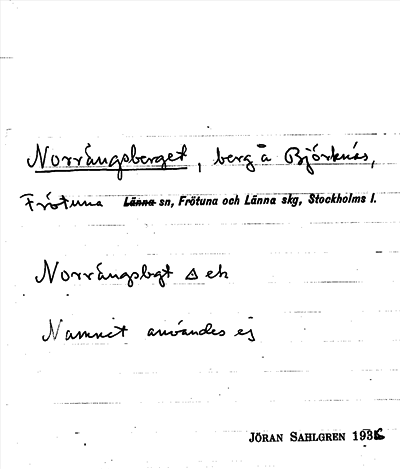 Norrängsberget, berg å Björknäs,
Frötuna Länna sn, Frötuna och Länna skg, Stockholms l.
Norrängsbgt △ ek
Namnet användes ej
JÖRAN SAHLGREN 1936